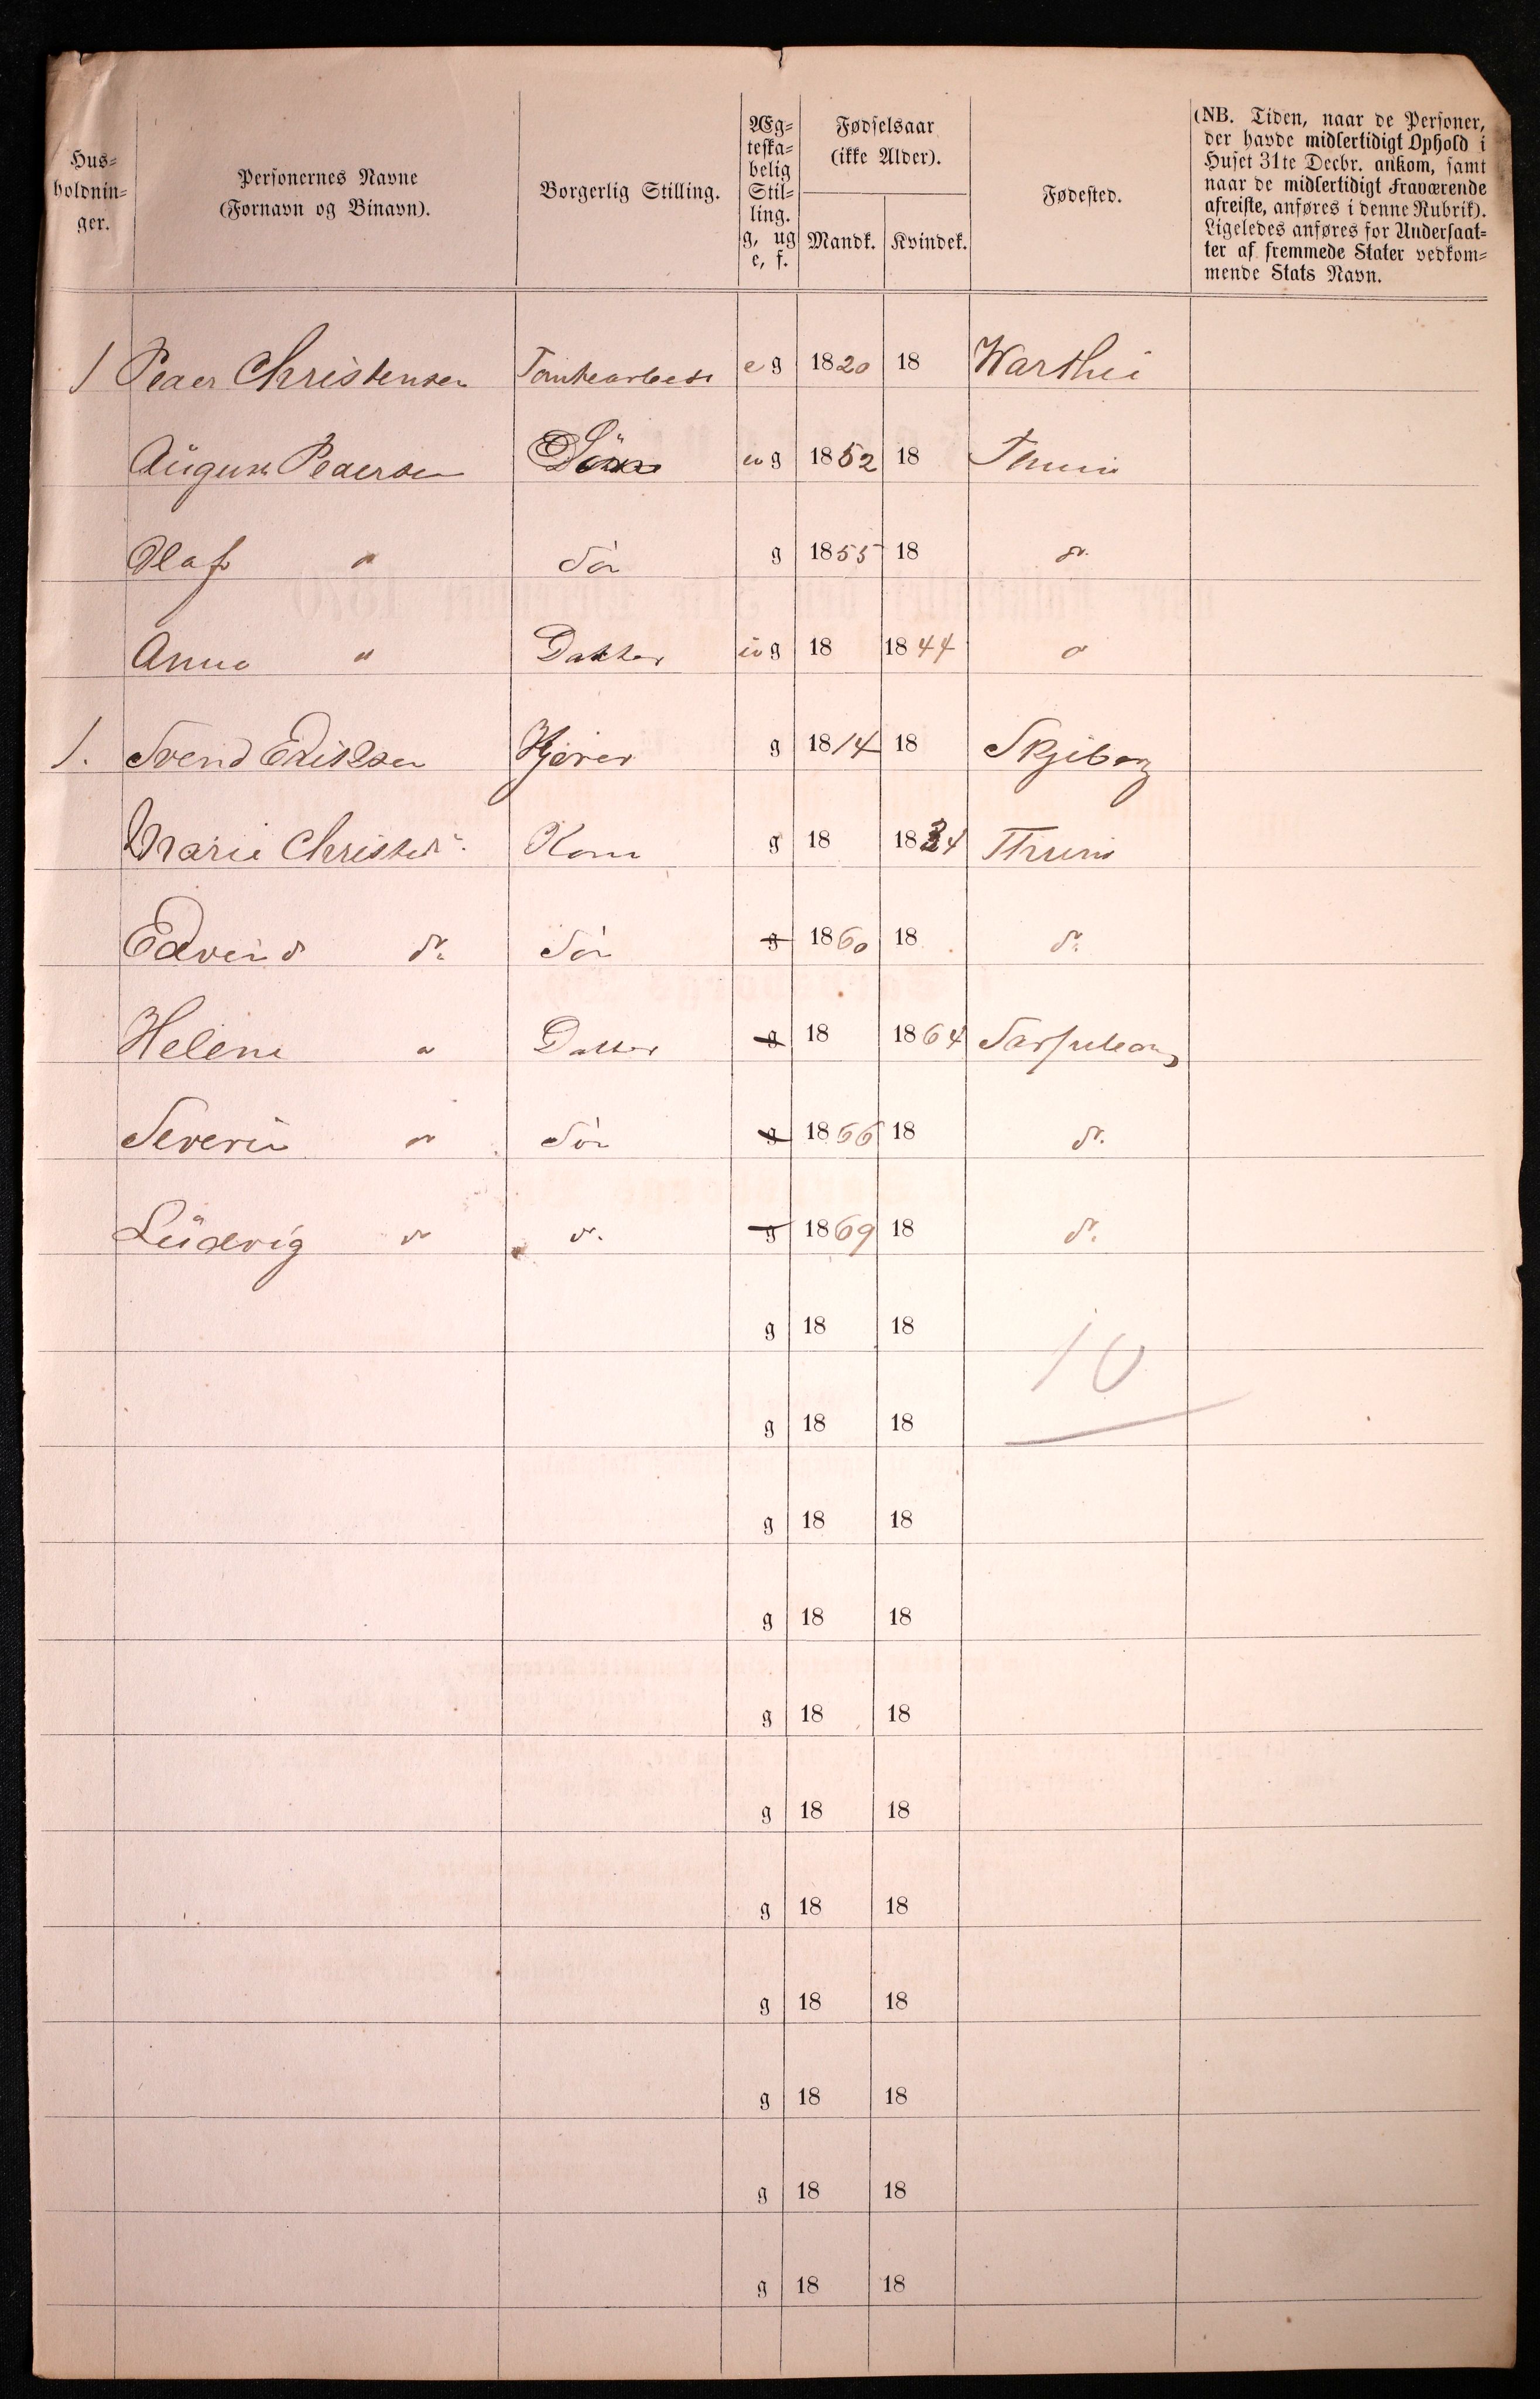 Hus=
holdnin=
ger.
Personernes Navne
(Fornavn og Binavn).
Borgerlig Stilling.
Æg=
teska=
belig
Stil=
ling.
g, ug
e, f.
Fødselsaar
(ikke Alder).
Mandk. Kvindek.
Fødested.
(NB. Tiden, naar de Personer,
der havde midlertidigt Ophold i
Huset 31te Decbr. ankom, samt
naar de midlertidigt Fraværende
afreiste, anføres i denne Rubrik).
Ligeledes anføres for Undersaat=
ter af fremmede Stater vedkom=
mende Stats Navn.
1 Peder Christensen e g 1820 18
August Pedersen Sön u g 1852 18
Olaf " Sön g 1855 18 do
Anna " Datter u g 18 1844 "
1. Svend Eriksen g 1814 18 Skjeberg
Marie Christens. Kone g 18 1834
Edvind do. Sön g 1860 18 do.
Helene " Datter g 18 1864 Sarpsborg
Severin " Sön g 1866 18 do.
Ludvig do do. g 1869 18 do.
g 18 18
10
g 18 18
g 18 18
g 18 18
g 18 18
g 18 18
g 18 18
g 18 18
g 18 18
g 18 18
g 18 18